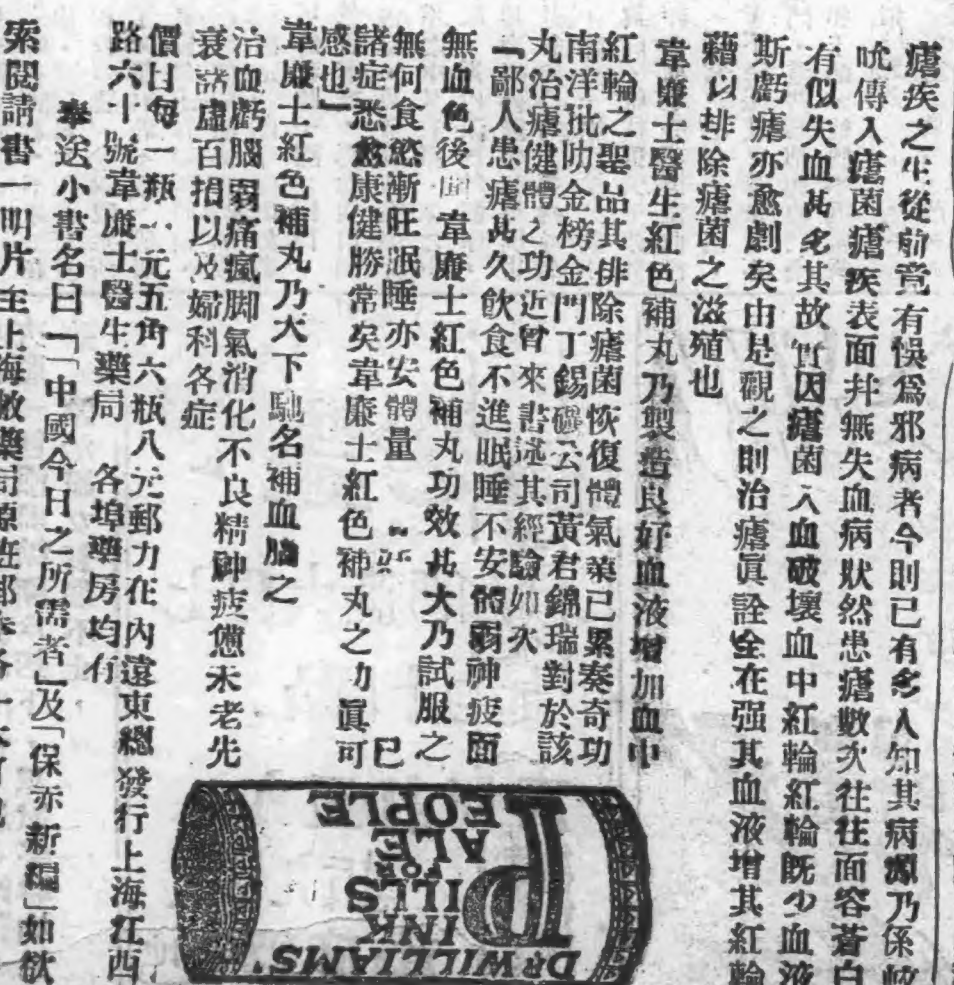 瘧疾之生從前竟有悞爲邪病者今則已有多人知其病源乃係蚊
吮傳入瘧菌瘧疾表面幷無失血病狀然患瘧數次往往面容蒼白
有似失血甚多其故實因瘧菌入血破壞血中紅輪紅輪既少血液
斯虧瘧亦愈劇矣由是觀之則治瘧眞詮全在强其血液增其紅輪
藉以排除瘧菌之滋殖也
韋廉士醫生紅色補丸乃製造良好血液增加血中
紅輪之聖品其排除瘧菌恢復體氣業已累奏奇功
南洋批叻金榜金門丁錫礦公司黃君錦瑞對於該
丸治瘧健體之功近曾來書述其經驗如次
「鄙人患瘧甚久飲食不進眠睡不安體弱神疲面
無血色後聞韋廉士紅色補丸功效甚大乃試服之
無何食慾漸旺眠睡亦安體量
已
諸症悉愈康健勝常矣韋廉士紅色補丸之力眞可
感也」
韋廉士紅色補丸乃天下馳名補血腦之
治血虧腦弱痛瘋脚氣消化不良精神疲憊未老先
衰諸虛百損以及婦科各症
價目每一瓶一元五角六瓶八元郵力在內遠東總發行上海江西
路六十號韋廉士醫生藥局 各埠藥房均有
奉送小書名曰「「中國今日之所需者」及「保赤新編」如欲
索閱請書一明片至上海敝藥局原班郵奉各一本可也
DR WILLIAMS'
PINK
PILLS
FOR
PALE
PEOPLE